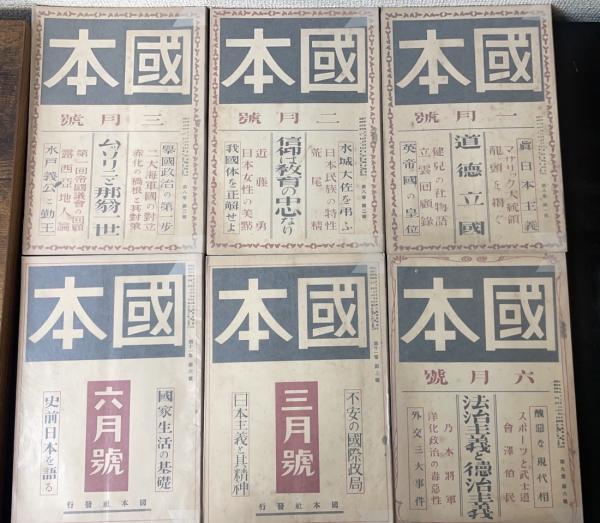 國本
一月號
眞日本主義
マサリック大統領
龍頭を揚ぐ
道德立國
健兒の社物語
立雲回顧錄
英帝國の皇位
國本
二月號
水城大佐を弔ふ
日本民族の特性
荒尾精
信仰は教育の中心なり
近藤勇
日本女性の美點
我國体を正解せよ
國本
三月號
擧國政治の第一步
二大海軍國の對立
赤化の禍根と其對策
ムッソリニと那翁一世
第一回帝國議會の回顧
露西亞地人論
水戸義公と勤王
國本
六月號
醜惡な現代相
スポーツと武士道
會澤伯民
法治主義と德治主義
乃木將軍
洋化政治の毒惡性
外交三大事件
國本
不安の國際政局
三月號
日本主義と其精神
國本社發行
國本
國家生活の基礎
六月號
史前日本を語る
國本社發行